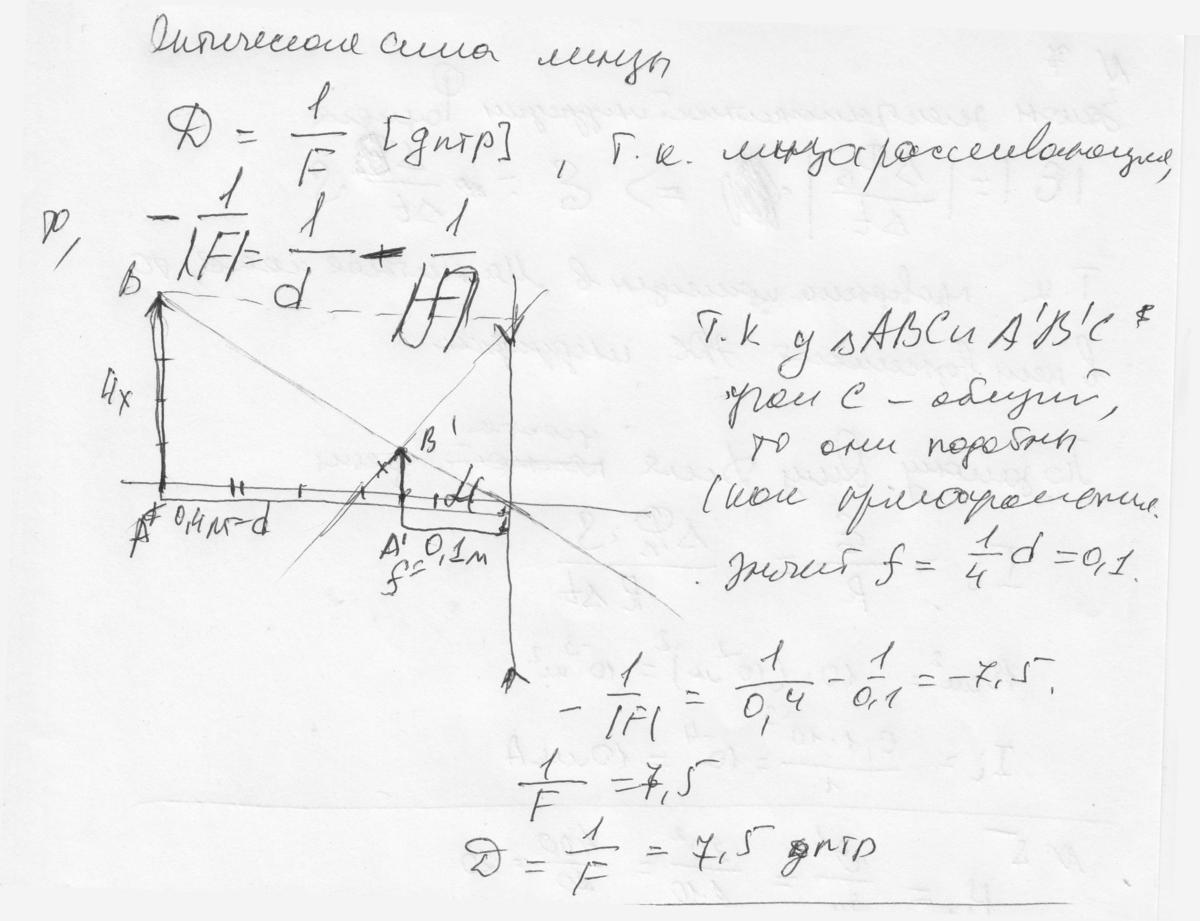 Оптическая сила линзы
D = 1/F [дптр], т.к. линза рассеивающая,
то, - 1/|F| = 1/d - 1/|f|
B
4x
B'
x
C
A
0,4м=d
A'
f=0,1м
т.к у △ABC и A'B'C
угол C - общий,
то они подобны
(как прямоугольные.
Значит f = 1/4 d = 0,1.
- 1/|F| = 1/0,4 - 1/0,1 = -7,5.
1/F = 7,5
D = 1/F = 7,5 дптр